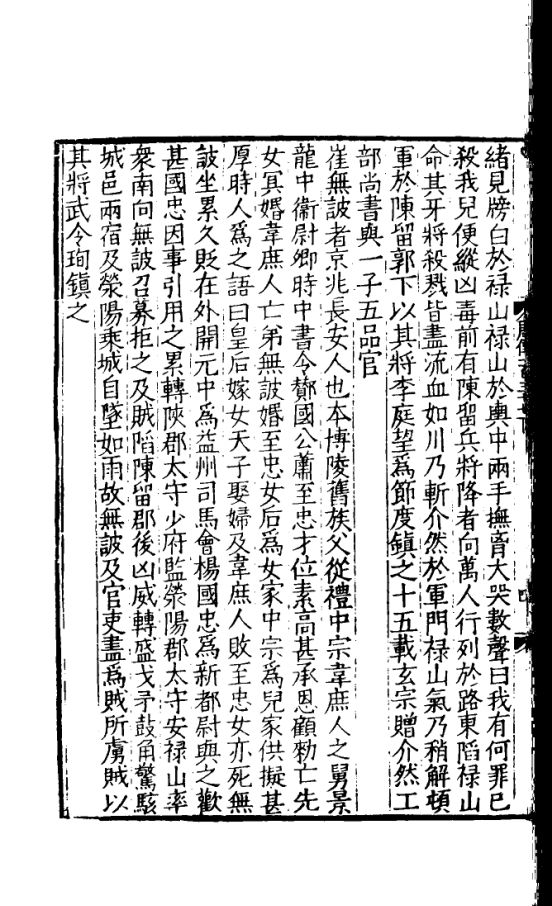 緒見牓白於禄山禄山於輿中兩手撫膺大哭數聲曰我有何罪已
殺我兒便縱凶毒前有陳留兵將降者向萬人行列於路東䧟禄山
命其牙將殺戮皆盡流血如川乃斬介然於軍門禄山氣乃稍解頓
軍於陳留郭下以其將李庭望爲節度鎮之十五載玄宗贈介然工
部尚書與一子五品官
崔無詖者京兆長安人也本博陵舊族父從禮中宗韋庶人之舅景
龍中衞尉卿時中書令酇國公蕭至忠才位素高甚承恩顧勑亡先
女冥婚韋庶人亡弟無詖婚至忠女后爲女家中宗爲兒家供擬甚
厚時人爲之語曰皇后嫁女天子娶婦及韋庶人敗至忠女亦死無
詖坐累久貶在外開元中爲益州司馬會楊國忠爲新都尉與之歡
甚國忠因事引用之累轉陜郡太守少府監滎陽郡太守安禄山率
衆南向無詖召募拒之及賊䧟陳留郡後凶威轉盛戈矛鼓角驚駭
城邑兩宿及滎陽乘城自墜如雨故無詖及官吏盡爲賊所虜賊以
其將武令珣鎮之